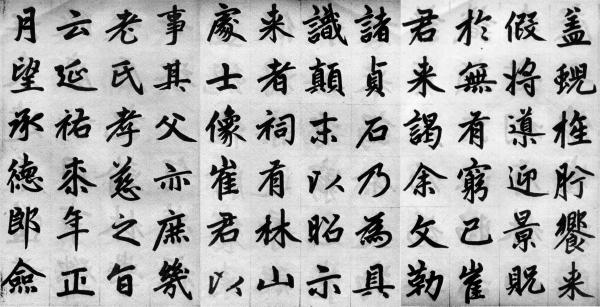 盖肸饗来
假将導迎景貺
於無有窮已崔
君来謁余文勒
諸貞石乃為具
識顛末以昭示
来者祠有林山
處士像崔君以
事其父亦庶幾
老氏孝慈之旨
云延祐柒年正
月望承德郎僉